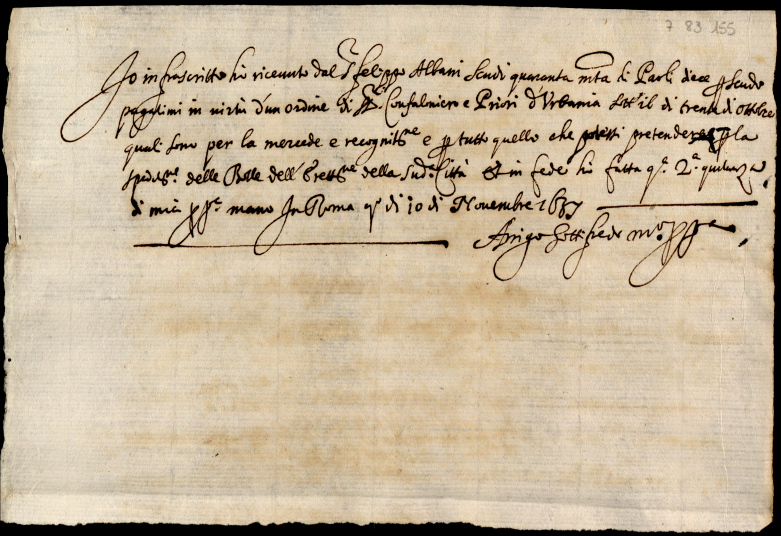 7 83 155
Io infrascritto hò ricevuto dal Sr. Felippo Albani scudi quaranta mta di Paoli diece p scudo
pagatimi in virtù d'un ordine di SSri. Confaloniero e Priori d'Urbania sott'il di trenta di ottobre
quali sono per la mercede e recognitne e p tutto quello che potessi pretendere p la
spedine. delle Bolle dell'Erettne della sudta. Città Et in fede hò fatta qta. 2a. quitanza
di mia pp.a mano In Roma qo di 10 di Novembre 1637
Arrigo Gottifredo mo. pp.a